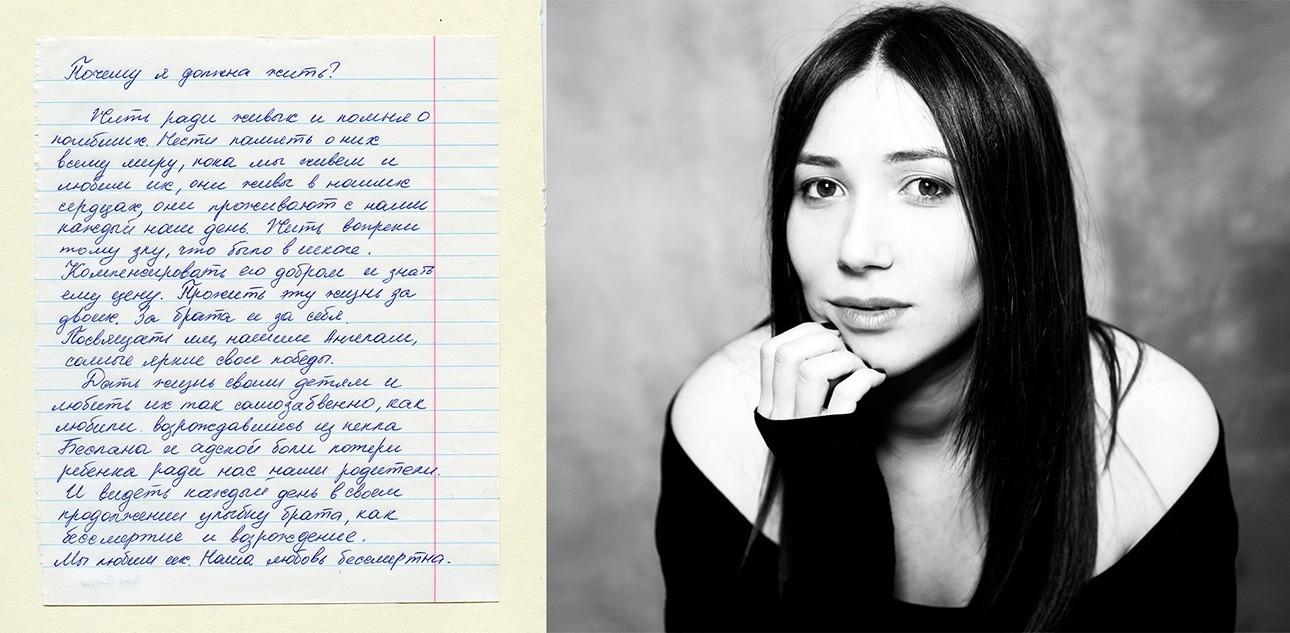 Почему я должна жить?
Жить ради живых и помня о
погибших. Нести память о них
всему миру, пока мы живем и
любим их, они живы в наших
сердцах, они проживают с нами
каждый наш день. Жить вопреки
тому злу, что было в школе.
Компенсировать его добром и знать
ему цену. Прожить эту жизнь за
двоих. За брата и за себя.
Посвящать им, нашим Ангелам,
самые яркие свои победы.
Дать жизнь своим детям и
любить их так самозабвенно, как
любили возрождавшись из пепла
Беслана и адской боли потери
ребенка ради нас наши родители.
И видеть каждый день в своем
продолжении улыбку брата, как
бессмертие и возрождение.
Мы любим их. Наша любовь бессмертна.